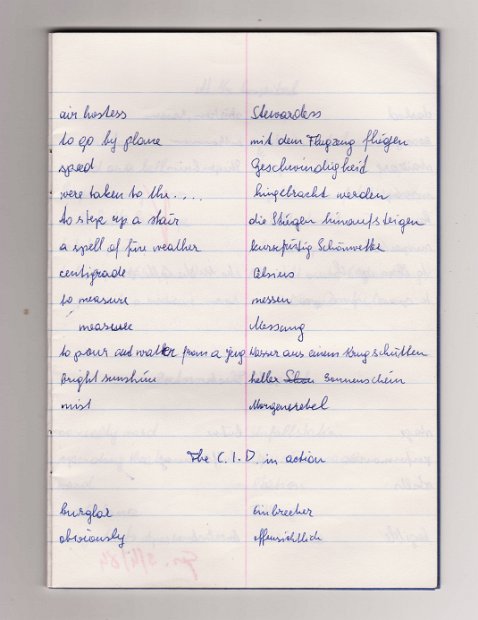 air hostess Stewardess
to go by plane mit dem Flugzeug fliegen
speed Geschwindigkeit
were taken to the.... hingebracht werden
to step up a stair die Stiegen hinaufsteigen
a spell of fine weather kurzfristig Schönwetter
centigrade Celsius
to measure messen
measure Messung
to pour out water from a jug Wasser aus einem Krug schütten
bright sunshine heller sonnenschein
mist Morgennebel
The C.I.D. in action
burglar Einbrecher
obviously offensichtlich